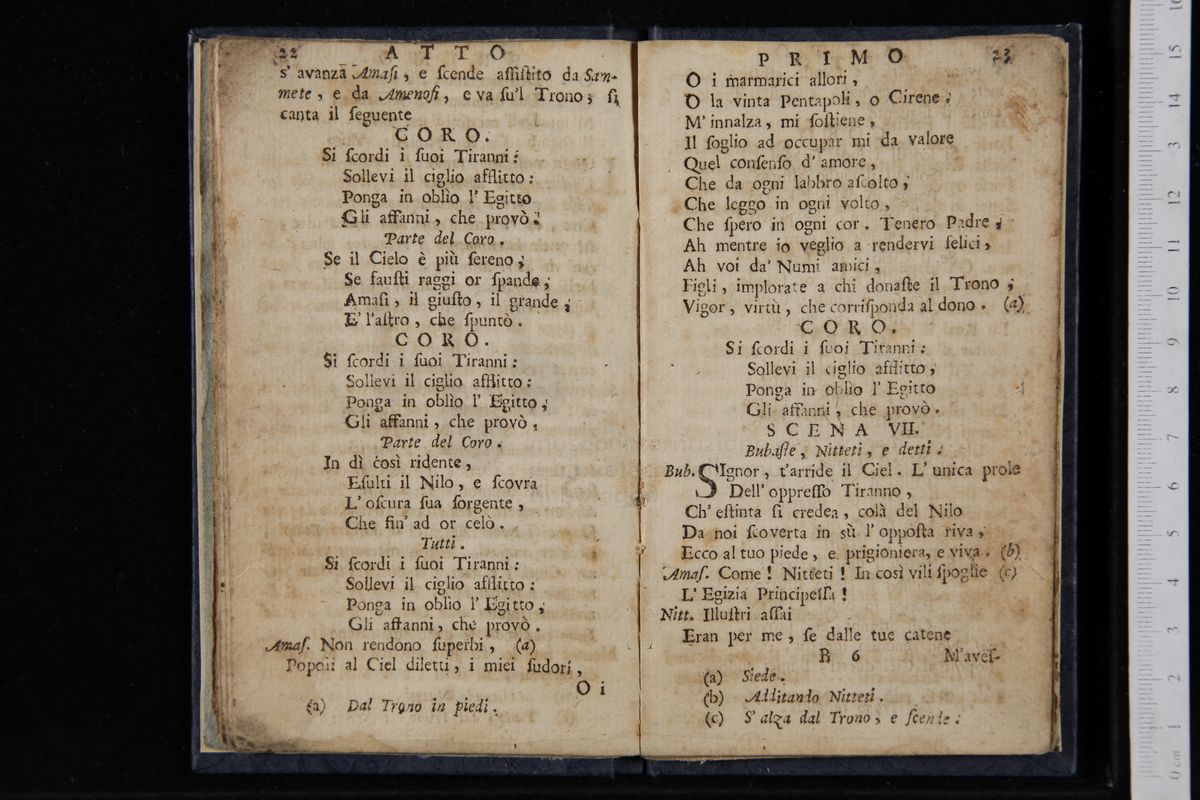 22 ATTO
s' avanza Amaſi, e ſcende aſſiſtito da San-
mete, e da Amenofi, e va ſu'l Trono; ſi
canta il ſeguente
CORO.
Si ſcordi i ſuoi Tiranni:
Sollevi il ciglio afflitto:
Ponga in oblìo l' Egitto
Gli affanni, che provò.
Parte del Coro.
Se il Cielo è più ſereno;
Se fauſti raggi or ſpande;
Amaſi, il giuſto, il grande;
E' l'aſtro, che ſpuntò.
CORO.
Si ſcordi i ſuoi Tiranni:
Sollevi il ciglio afflitto:
Ponga in oblìo l' Egitto;
Gli affanni, che provò.
Parte del Coro.
In dì così ridente,
Eſulti il Nilo, e ſcovra
L' oſcura ſua ſorgente,
Che fin' ad or celò.
Tutti.
Si ſcordi i ſuoi Tiranni:
Sollevi il ciglio afflitto:
Ponga in oblìo l' Egitto;
Gli affanni, che provò.
Amaſ. Non rendono ſuperbi, (a)
Popoli al Ciel diletti, i miei ſudori,
O i
(a) Dal Trono in piedi.
PRIMO 23
O i marmarici allori,
O la vinta Pentapoli, o Cirene:
M' innalza, mi ſoſtiene,
Il ſoglio ad occupar mi da valore
Quel conſenſo d' amore,
Che da ogni labbro aſcolto;
Che leggo in ogni volto,
Che ſpero in ogni cor. Tenero Padre;
Ah mentre io veglio a rendervi felici,
Ah voi da' Numi amici,
Figli, implorate a chi donaſte il Trono;
Vigor, virtù, che corriſponda al dono. (a)
CORO.
Si ſcordi i ſuoi Tiranni:
Sollevi il ciglio afflitto;
Ponga in oblìo l' Egitto
Gli affanni, che provò.
SCENA VII.
Bubaſte, Nitteti, e detti:
Bub. SIgnor, t'arride il Ciel. L' unica prole
Dell' oppreſſo Tiranno,
Ch' eſtinta ſi credea, colà del Nilo
Da noi ſcoverta in sù l' oppoſta riva,
Ecco al tuo piede, e prigioniera, e viva. (b)
Amaſ. Come! Nitteti! In così vili ſpoglie (c)
L' Egizia Principeſſa!
Nitt. Illuſtri aſſai
Eran per me, ſe dalle tue catene
B 6 M'aveſ-
(a) Siede.
(b) Additando Nitteti.
(c) S' alza dal Trono, e ſcende: